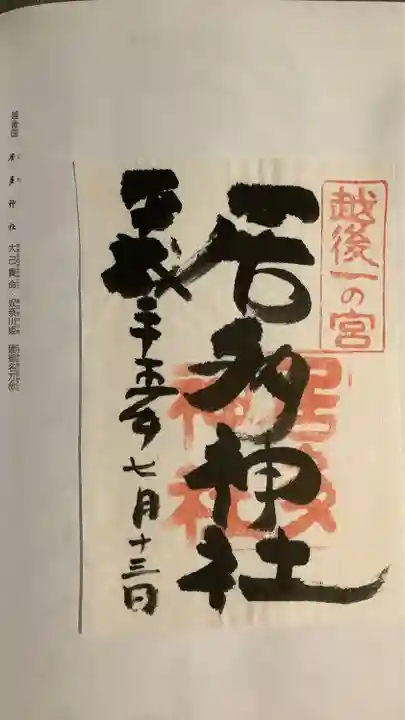 越後一の宮
居多神社
居多神社
平成二十五年七月十三日
越後国 居多神社 大己貴命 奴奈川姫 建御名方命